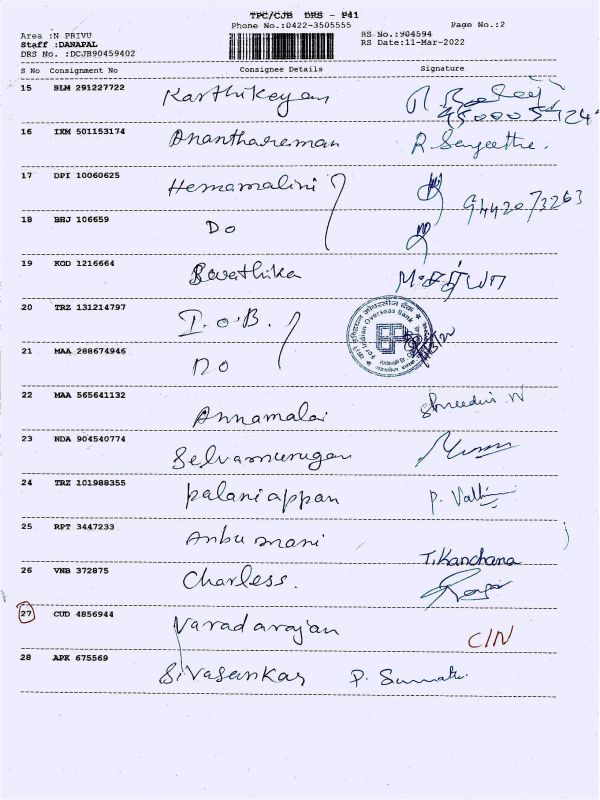 TPC/CJB DRS - P41
Phone No.:0422-3505555 Page No.:2
Area :N PRIVU RS No.:904594
Staff :DANAPAL RS Date:11-Mar-2022
DRS No. :DCJB90459402
S No Consignment No Consignee Details Signature
15 BLM 291227722 Karthikeyan
16 IXM 501153174 Ananthareman R Sengeetha.
17 DPI 10060625 Hemamalini 9442073263
18 BHJ 106659 Do
19 KGD 1216664
20 TRZ 131214797 I.O.B.
For Indian Overseas Bank
21 MAA 288674946 DO
22 MAA 565641132 Annamalai
23 NDA 904540774 Selvamurugan
24 TRZ 101988355 Palaniappan P.
25 RPT 3447233 Anbu mani T.Kanchana
26 VNB 372875 Charless.
27 CUD 4856944 Varadarajan C/N
28 APK 675569 Sivasankar P.